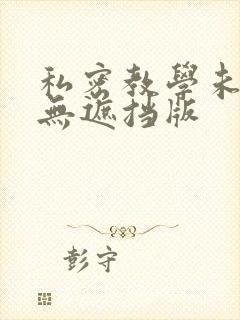 私密教學未
無遮挡版
彭守